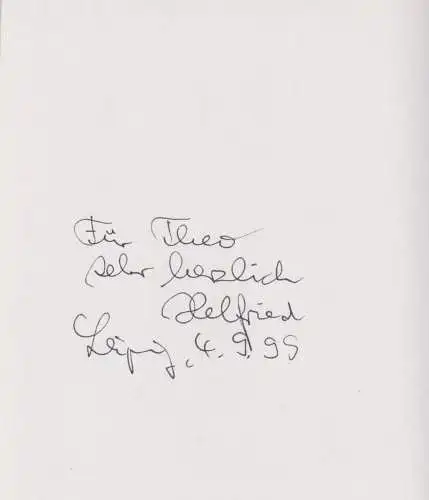 Für Theo
sehr herzlich
Helfried
Leipzig, 4. 9. 99